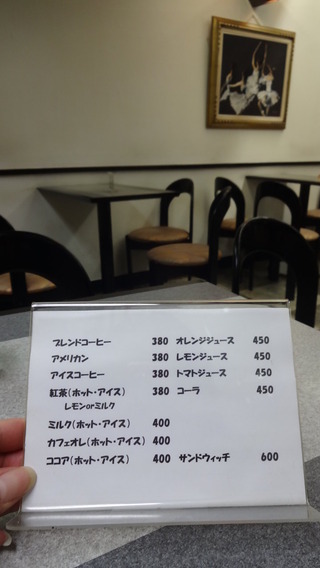 ブレンドコーヒー 380 オレンジジュース 450
アメリカン 380 レモンジュース 450
アイスコーヒー 380 トマトジュース 450
紅茶(ホット・アイス) 380 コーラ 450
レモンorミルク
ミルク(ホット・アイス) 400
カフェオレ(ホット・アイス) 400
ココア(ホット・アイス) 400 サンドウィッチ 600